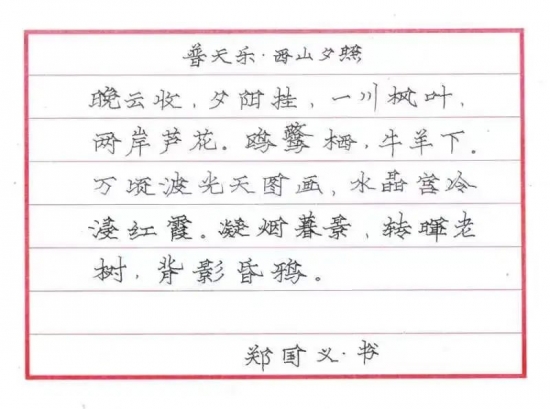 普天乐·西山夕照
晚云收，夕阳挂，一川枫叶，
两岸芦花。鸥鹭栖，牛羊下。
万顷波光天图画，水晶宫冷
浸红霞。凝烟暮景，转晖老
树，背影昏鸦。
郑国义·书